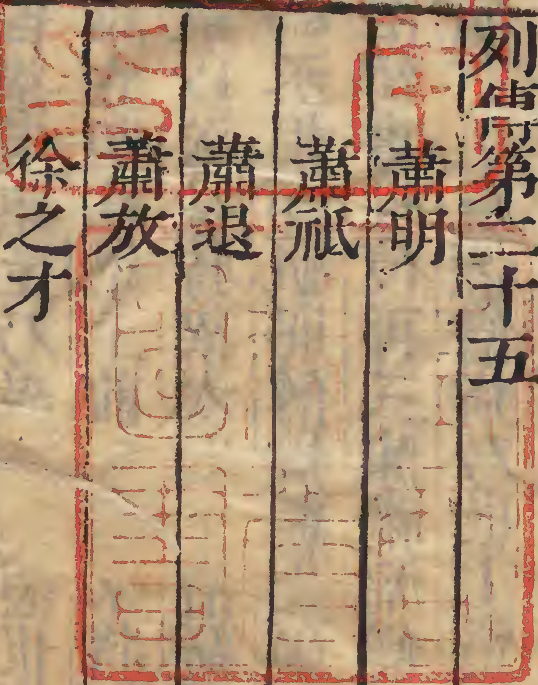 列傳第二十五
蕭明
蕭祇
蕭退
蕭放
徐之才